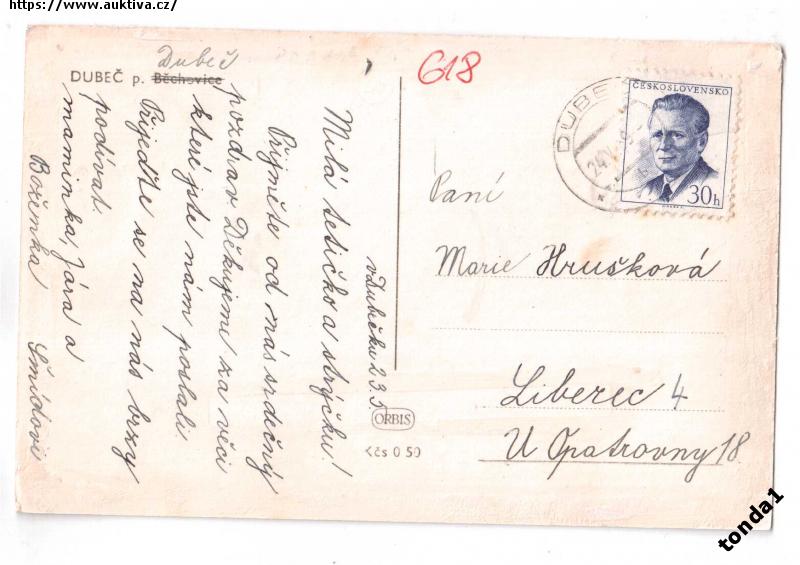 https://www.auktiva.cz/
Dubeč
DUBEČ p. Běchovice
618
v Dubečku 23.5.
Milá tetičko a strýčku!
Přijměte od nás srdečný
pozdrav. Děkujeme za věci
které jste nám poslali.
Přijeďte se na nás brzy
podívat.
maminka, Jára a
Boženka Šmídovi
ORBIS
Kčs 0 50
DUBE
24.V.
ČESKOSLOVENSKO
30h
Paní
Marie Hrušková
Liberec 4
U Opatrovny 18
tonda1